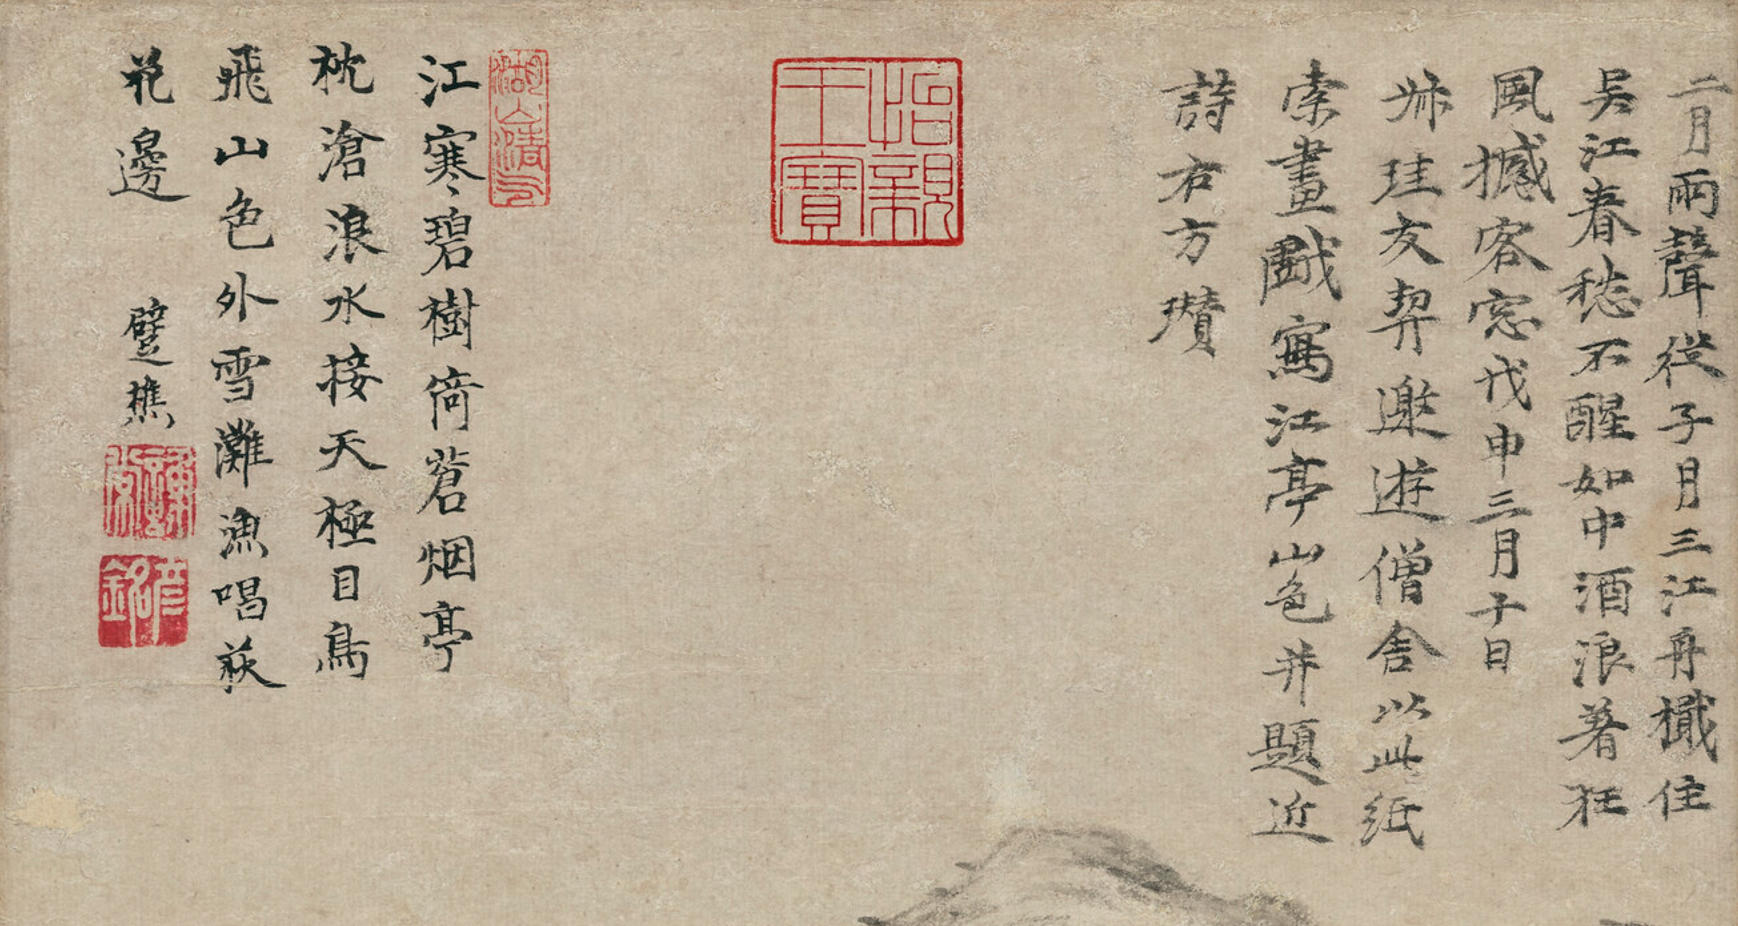 二月雨聲從子月三江舟檥住
吳江春愁不醒如中酒浪著狂
風撼客窓戊申三月十日
姊珪友契邀遊僧舍以此紙
索畫戲寫江亭山色并題近
詩右方瓚
怡親王寶
江寒碧樹倚蒼烟亭
枕滄浪水接天極目鳥
飛山色外雪灘漁唱荻
花邊
躄樵
彥銘